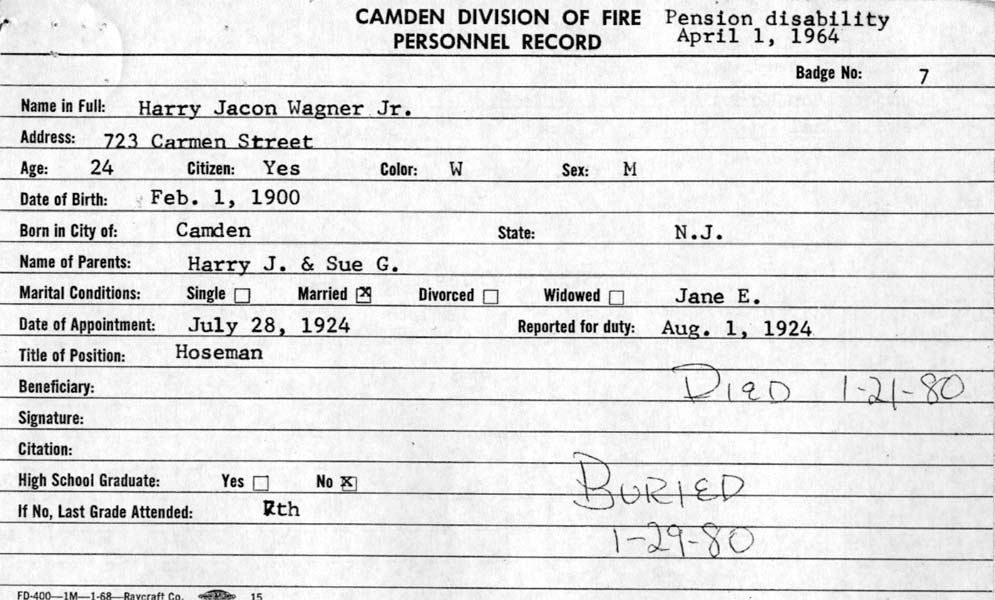 CAMDEN DIVISION OF FIRE Pension disability
PERSONNEL RECORD April 1, 1964
Badge No: 7
Name in Full: Harry Jacon Wagner Jr.
Address: 723 Carmen Street
Age: 24 Citizen: Yes Color: W Sex: M
Date of Birth: Feb. 1, 1900
Born in City of: Camden State: N.J.
Name of Parents: Harry J. & Sue G.
Marital Conditions: Single ☐ Married ☒ Divorced ☐ Widowed ☐ Jane E.
Date of Appointment: July 28, 1924 Reported for duty: Aug. 1, 1924
Title of Position: Hoseman
Beneficiary: DIED 1-21-80
Signature:
Citation:
High School Graduate: Yes ☐ No ☒ BURIED
If No, Last Grade Attended: 7th
1-29-80
FD-400—1M—1-68—Raycraft Co. 15